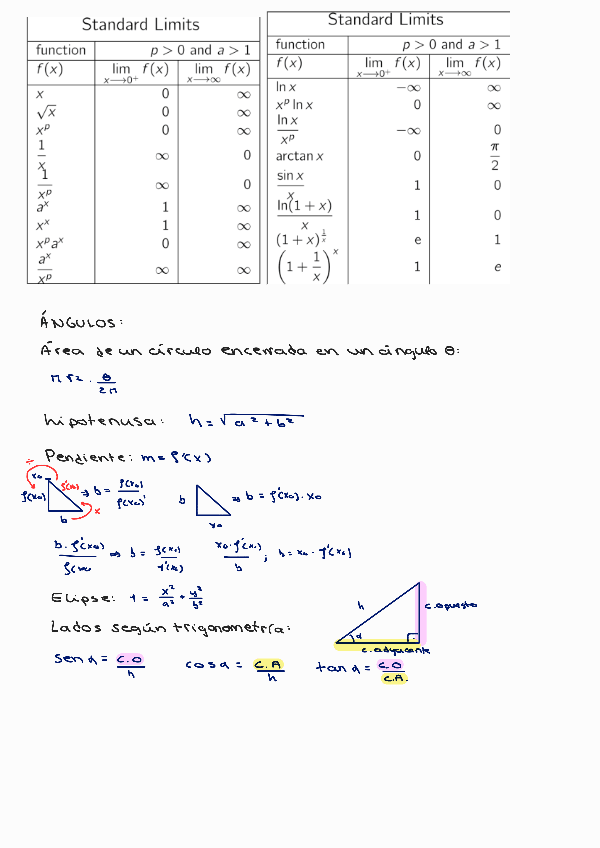 Standard Limits
function p > 0 and a > 1
f(x) lim x⟶0⁺ f(x) lim x⟶∞ f(x)
x 0 ∞
√x 0 ∞
xᵖ 0 ∞
1/x ∞ 0
1/xᵖ ∞ 0
aˣ 1 ∞
xˣ 1 ∞
xᵖaˣ 0 ∞
aˣ/xᵖ ∞ ∞
Standard Limits
function p > 0 and a > 1
f(x) lim x⟶0⁺ f(x) lim x⟶∞ f(x)
ln x −∞ ∞
xᵖ ln x 0 ∞
ln x/xᵖ −∞ 0
arctan x 0 π/2
sin x/x 1 0
ln(1 + x)/x 1 0
(1 + x)^(1/x) e 1
(1 + 1/x)^x 1 e
ÁNGULOS:
Área de un círculo encerrada en un ángulo θ:
π r². θ/2π
hipotenusa: h = √(a² + b²)
Pendiente: m = f'(x)
÷ x₀ f(x₀) f'(x₀) b x ⇒ b = f(x₀)/f'(x₀)
b x₀ ⇒ b = f'(x₀) · x₀
b · f'(x₀)/f(x₀) ⇒ b = f(x₀)/f'(x₀) x₀ · f'(x₀)/b ; b = x₀ · f'(x₀)
Elipse: 1 = x²/a² + y²/b²
Lados según trigonometría:
h c. opuesto
α
c. adyacente
sen α = C.O/h cos α = C.A/h tan α = C.O/C.A.